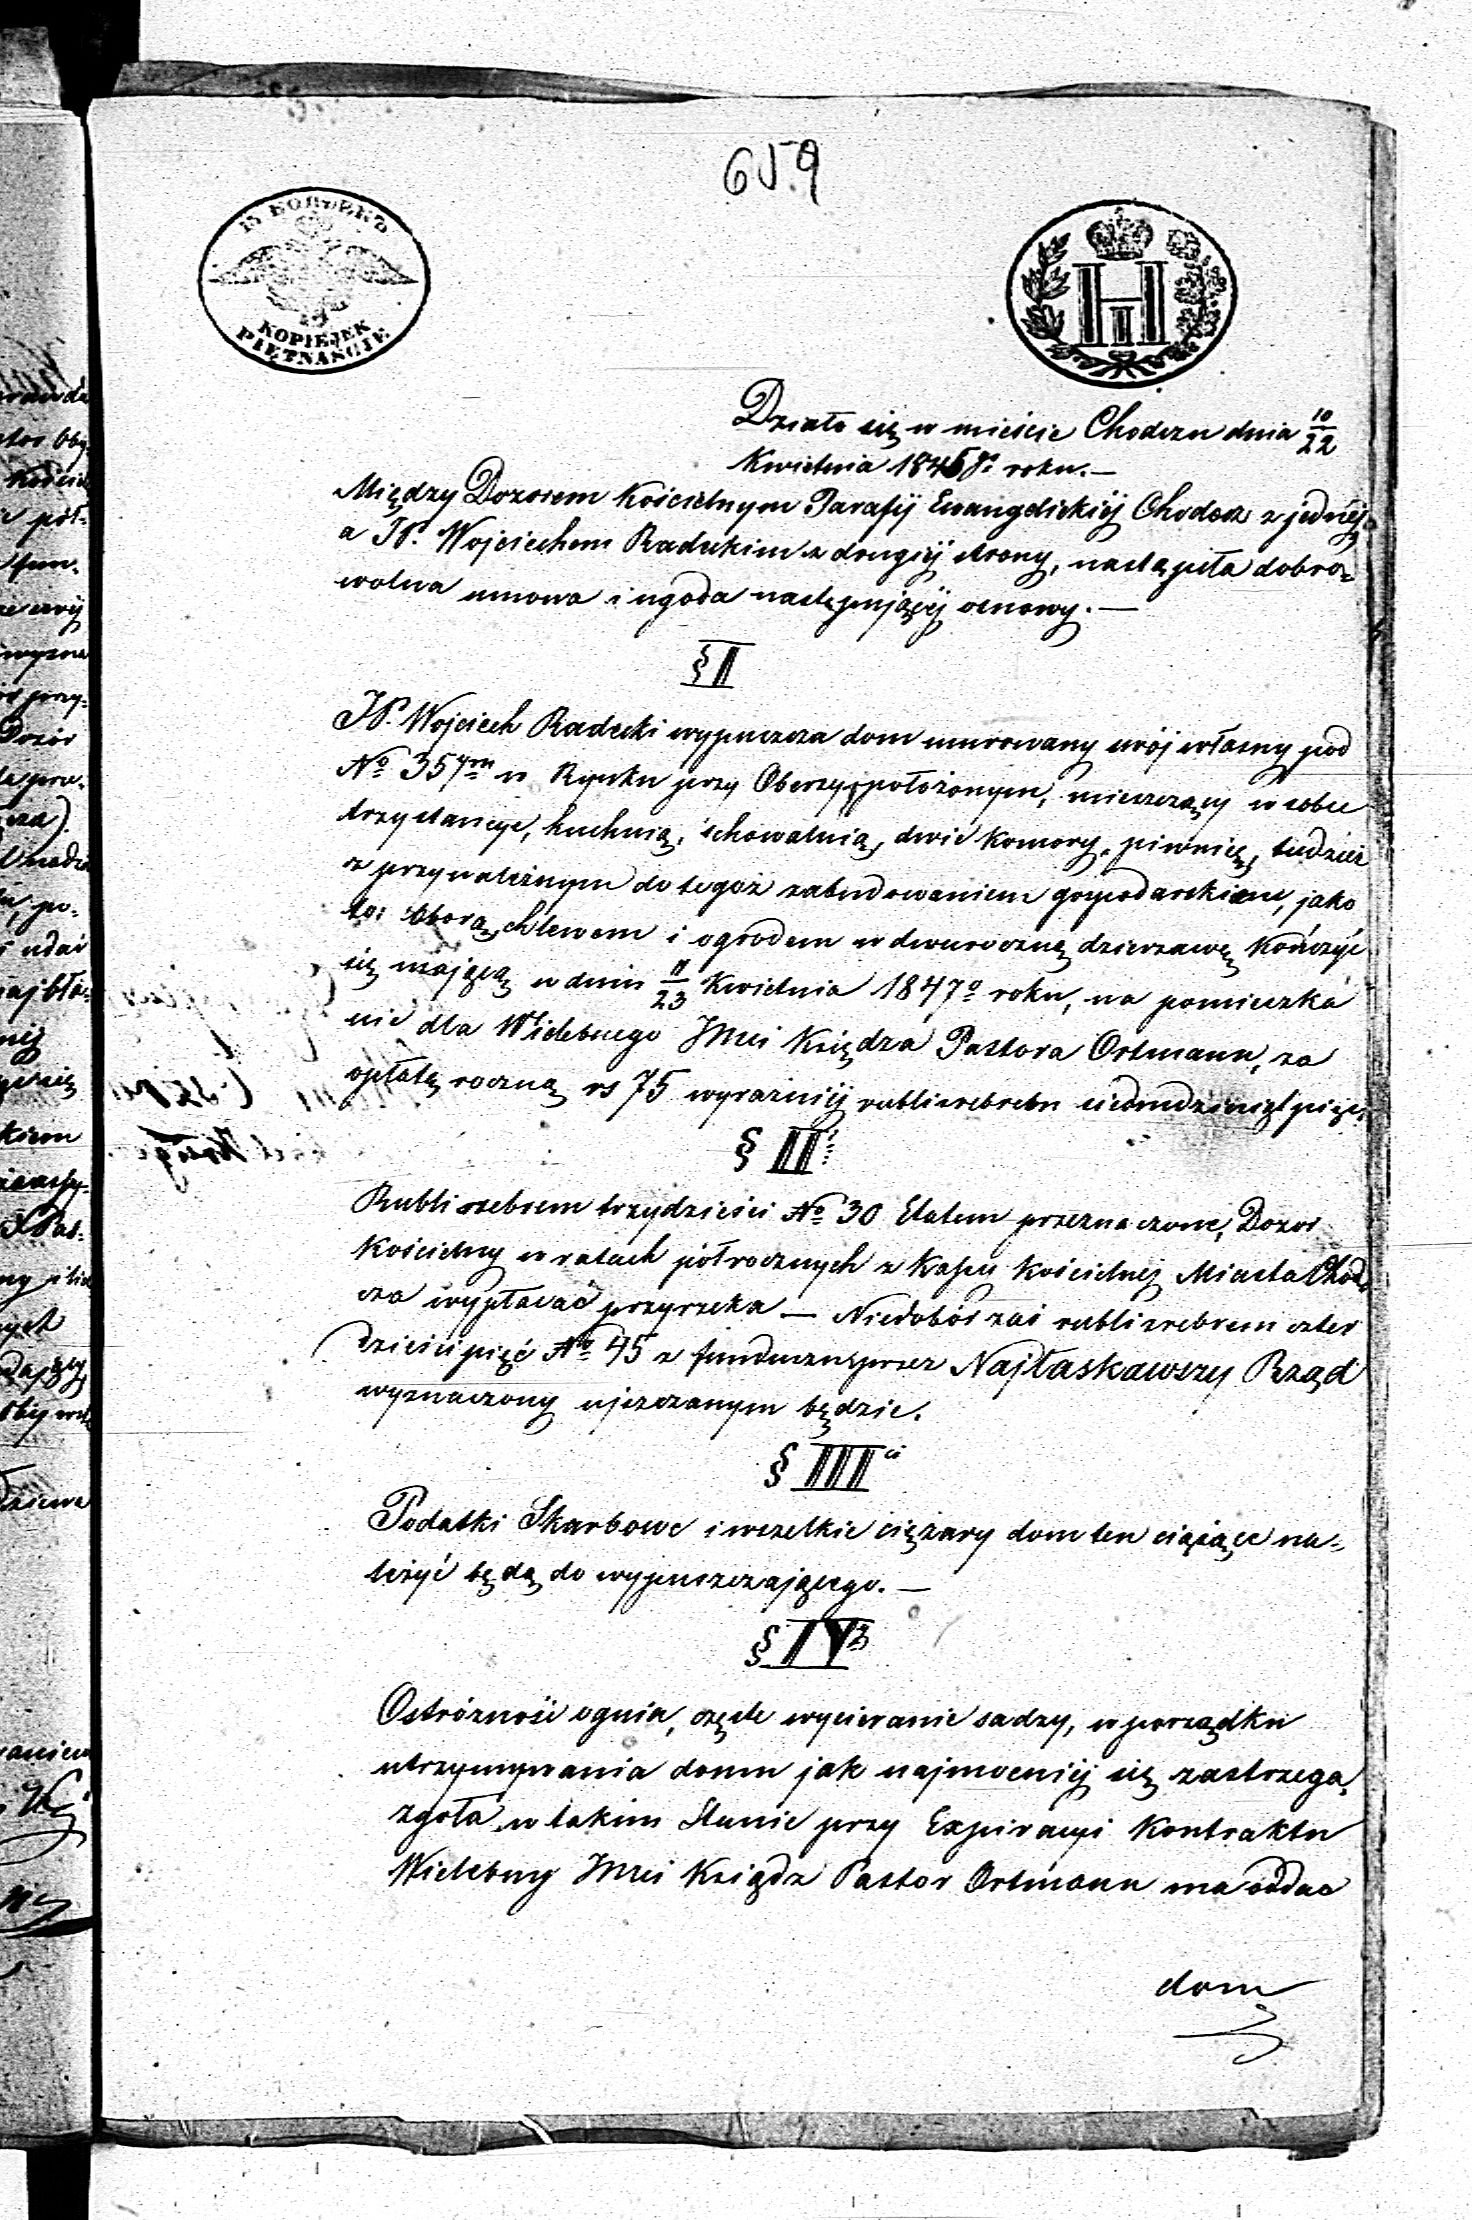 659
15 КОПѢЕКЪ
KOPIEJEK
PIĘTNAŚCIE
Н I
Działo się w mieście Chodczu dnia 10/22
Kwietnia 1845go roku. —
Między Dozorem Kościelnym Parafij Ewangelickiéj Chodecz z jednéj
a JP. Wojciechem Radeckim z drugiéj strony, nastąpiła dobro=
wolna umowa i ugoda następującéj osnowy. —
§ I
JP. Wojciech Radecki wypuszcza dom murowany swój własny pod
No 357m w Rynku przy Oberzy położonym, mieszczący w sobie
trzy stancye, kuchnią, schowalnią, dwie komory, piwnicę, tudzież
z przynależnym do tegoż zabudowaniem gospodarskiem, jako
to: Oborą, chlewem i ogrodem w dwuroczną dzierzawę kończyć
się mającą w dniu 11/23 Kwietnia 1847o roku, na pomieszka
nie dla Wielebnego Jmci Księdza Pastora Ortmann, za
opłatą roczną rs 75 wyrazniéj rubli srebrem siedmdziesiąt pięć.
§ II
Rubli srebrem trzydzieści No 30 Etatem przeznaczone, Dozor
Kościelny w ratach półrocznych z Kassy Kościelnéj Miasta Chod=
cza wypłacać przyrzeka — Niedobór zaś rubli srebrem czter
dzieści pięć No 45 z funduszu przez Najłaskawszy Rząd
wyznaczony ujszczanym będzie.
§ III ci
Podatki Skarbowe i wszelkie ciężary dom ten ciążące na=
leżyć będą do wypuszczającego. —
§ IV
Ostróżność ognia, częste wycieranie sadzy, w porządku
utrzymywania domu jak najmocniéj się zastrzega,
zgoła w takim Stanie przy Expiracyi Kontraktu
Wielebny Jmci Ksiądz Pastor Ortmann ma oddać
dom